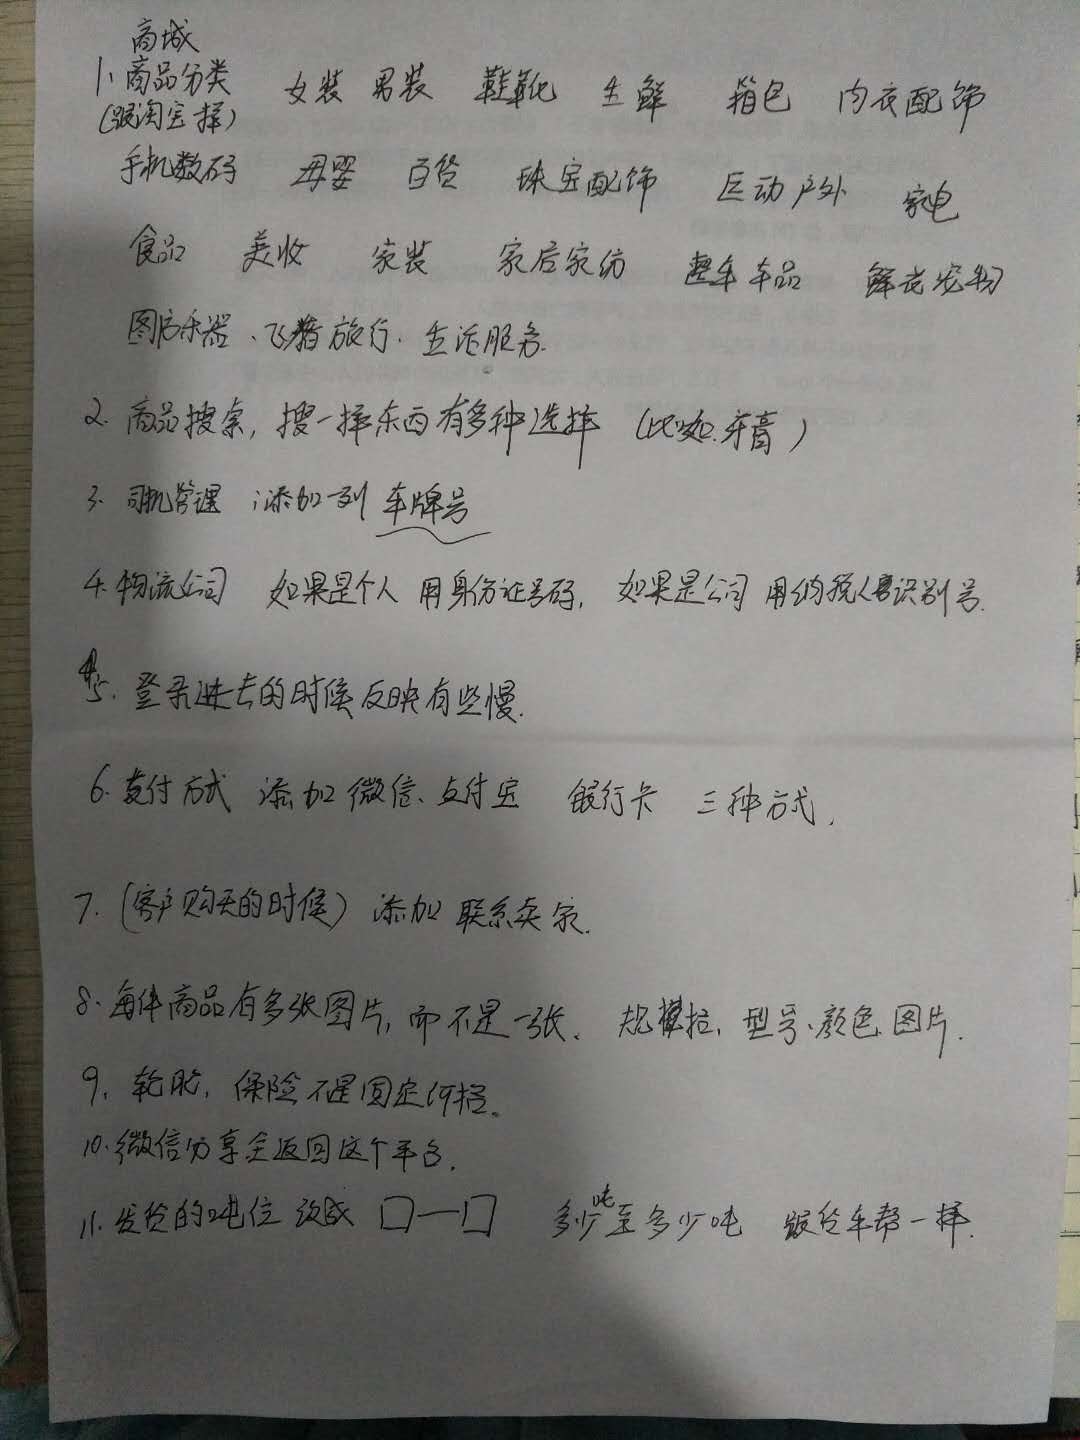 商城
1、商品分类 女装 男装 鞋靴 生鲜 箱包 内衣配饰
(跟淘宝择)
手机数码 母婴 百货 珠宝配饰 运动户外 家电
食品 美妆 家装 家居家纺 整车车品 鲜花宠物
图书乐器、飞猪旅行、生活服务.
2. 商品搜索, 搜一样东西有多种选择 (比如.牙膏)
3. 司机管理 添加一列 车牌号
4. 物流公司 如果是个人 用身份证号码, 如果是公司 用纳税人识别号.
5. 登录进去的时候反映有些慢.
6. 支付方式 添加 微信、支付宝 银行卡 三种方式,
7. (客户购买的时候) 添加 联系卖家.
8. 每件商品有多张图片, 而不是一张. 规格, 型号、颜色、图片.
9. 轮胎, 保险不是固定价格。
10. 微信分享全返回这个平台.
11. 发货的吨位 改成 口—口 多少吨至多少吨 跟货车帮一样.